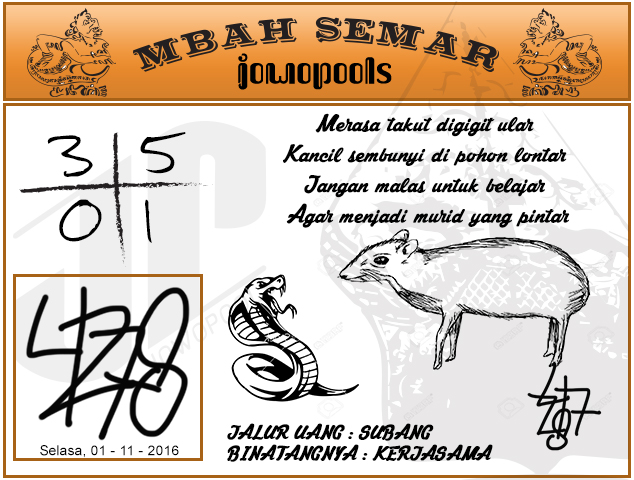 MBAH SEMAR
jowopools
Merasa takut digigit ular
Kancil sembunyi di pohon lontar
Jangan malas untuk belajar
Agar menjadi murid yang pintar
3 5
0 1
Selasa, 01 - 11 - 2016
JALUR UANG : SUBANG
BINATANGNYA : KERJASAMA